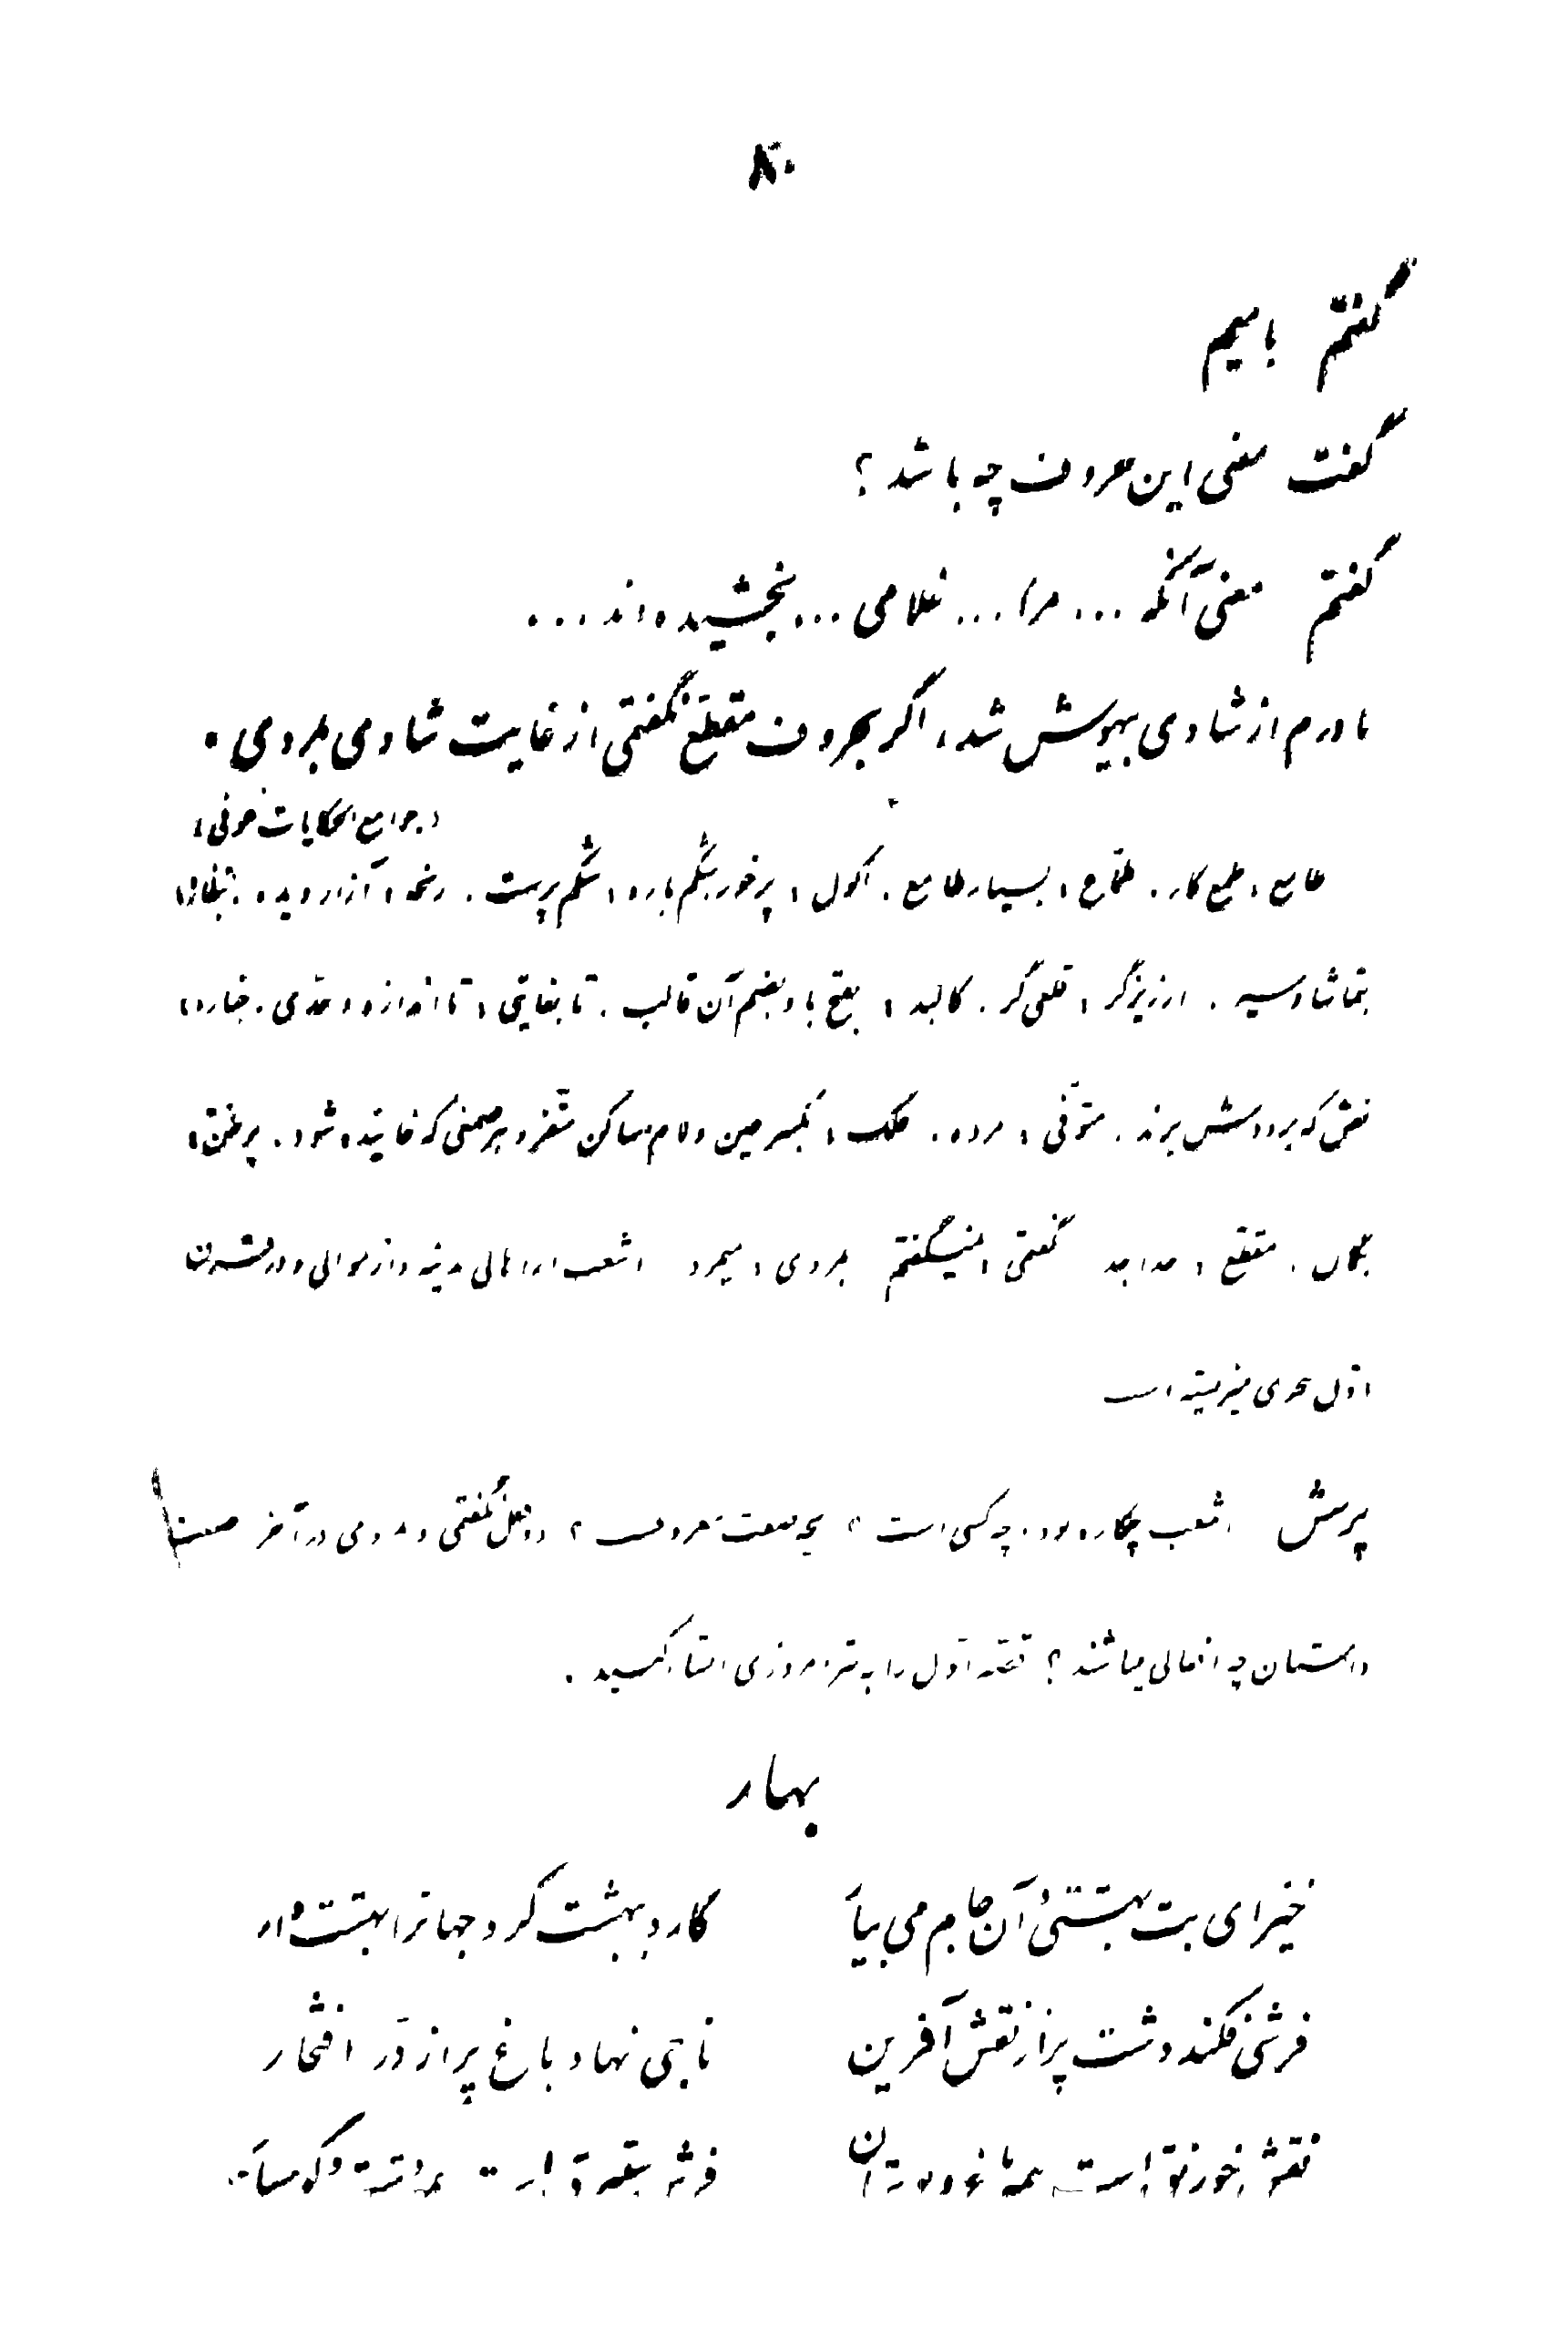 ۸۰
گفتم بامیم
گفت معنی این حروف چه باشد؟
گفتم معنی آنکه ... مرا ... غلامی ... بخشیده‌اند ...
مادرم از شادی بیهوش شد، اگر بحروف مقطّع نگفتمی از غایت شادی بمردمی.
«جوامع الحکایات عوفی»
طامع، طمع کار. طمّاع، بسیار طامع. اکول، پرخور شکم باره، شکم پرست. رنجه، آزار دیده. بنظاره،
بتماشا و سیر. ارزیزگر، قلعی گر. کالبد، بفتح با و بضم آن قالب. تا بغایتی، تا اندازه و حدی. جنازه،
نعش که بر دوش برند. متوفّی، مرده. علک، بکسر عین و لام ساکن سقز و هر صمغی که خائیده شود. بر ظن،
بگمان. مقطع، جدا جدا گفتمی، میگفتم بمردی، میمرد اشعب از اهالی مدینه و از موالی و در قرن
اول هجری میزیسته است
پرسش اشعب چکاره بود. چه کسی است؟ بچه صفت معروف؟ دو فعل گفتمی و مردمی در آخر
داستان چه افعالی میباشند؟ قصّه اوّل را به نثر امروزی انشا کنید.
بهار
خیز ای بت بهشتی و آن جام می بیار کاردیبهشت کرد جهانرا بهشت وار
فرشی فکند دشت پر از نقش آفرین تاجی نهاد باغ پر از درّ افتخار
نقش خورنق است همه باغ و بوستان فرش ستبرق است همه دشت و کوهسار